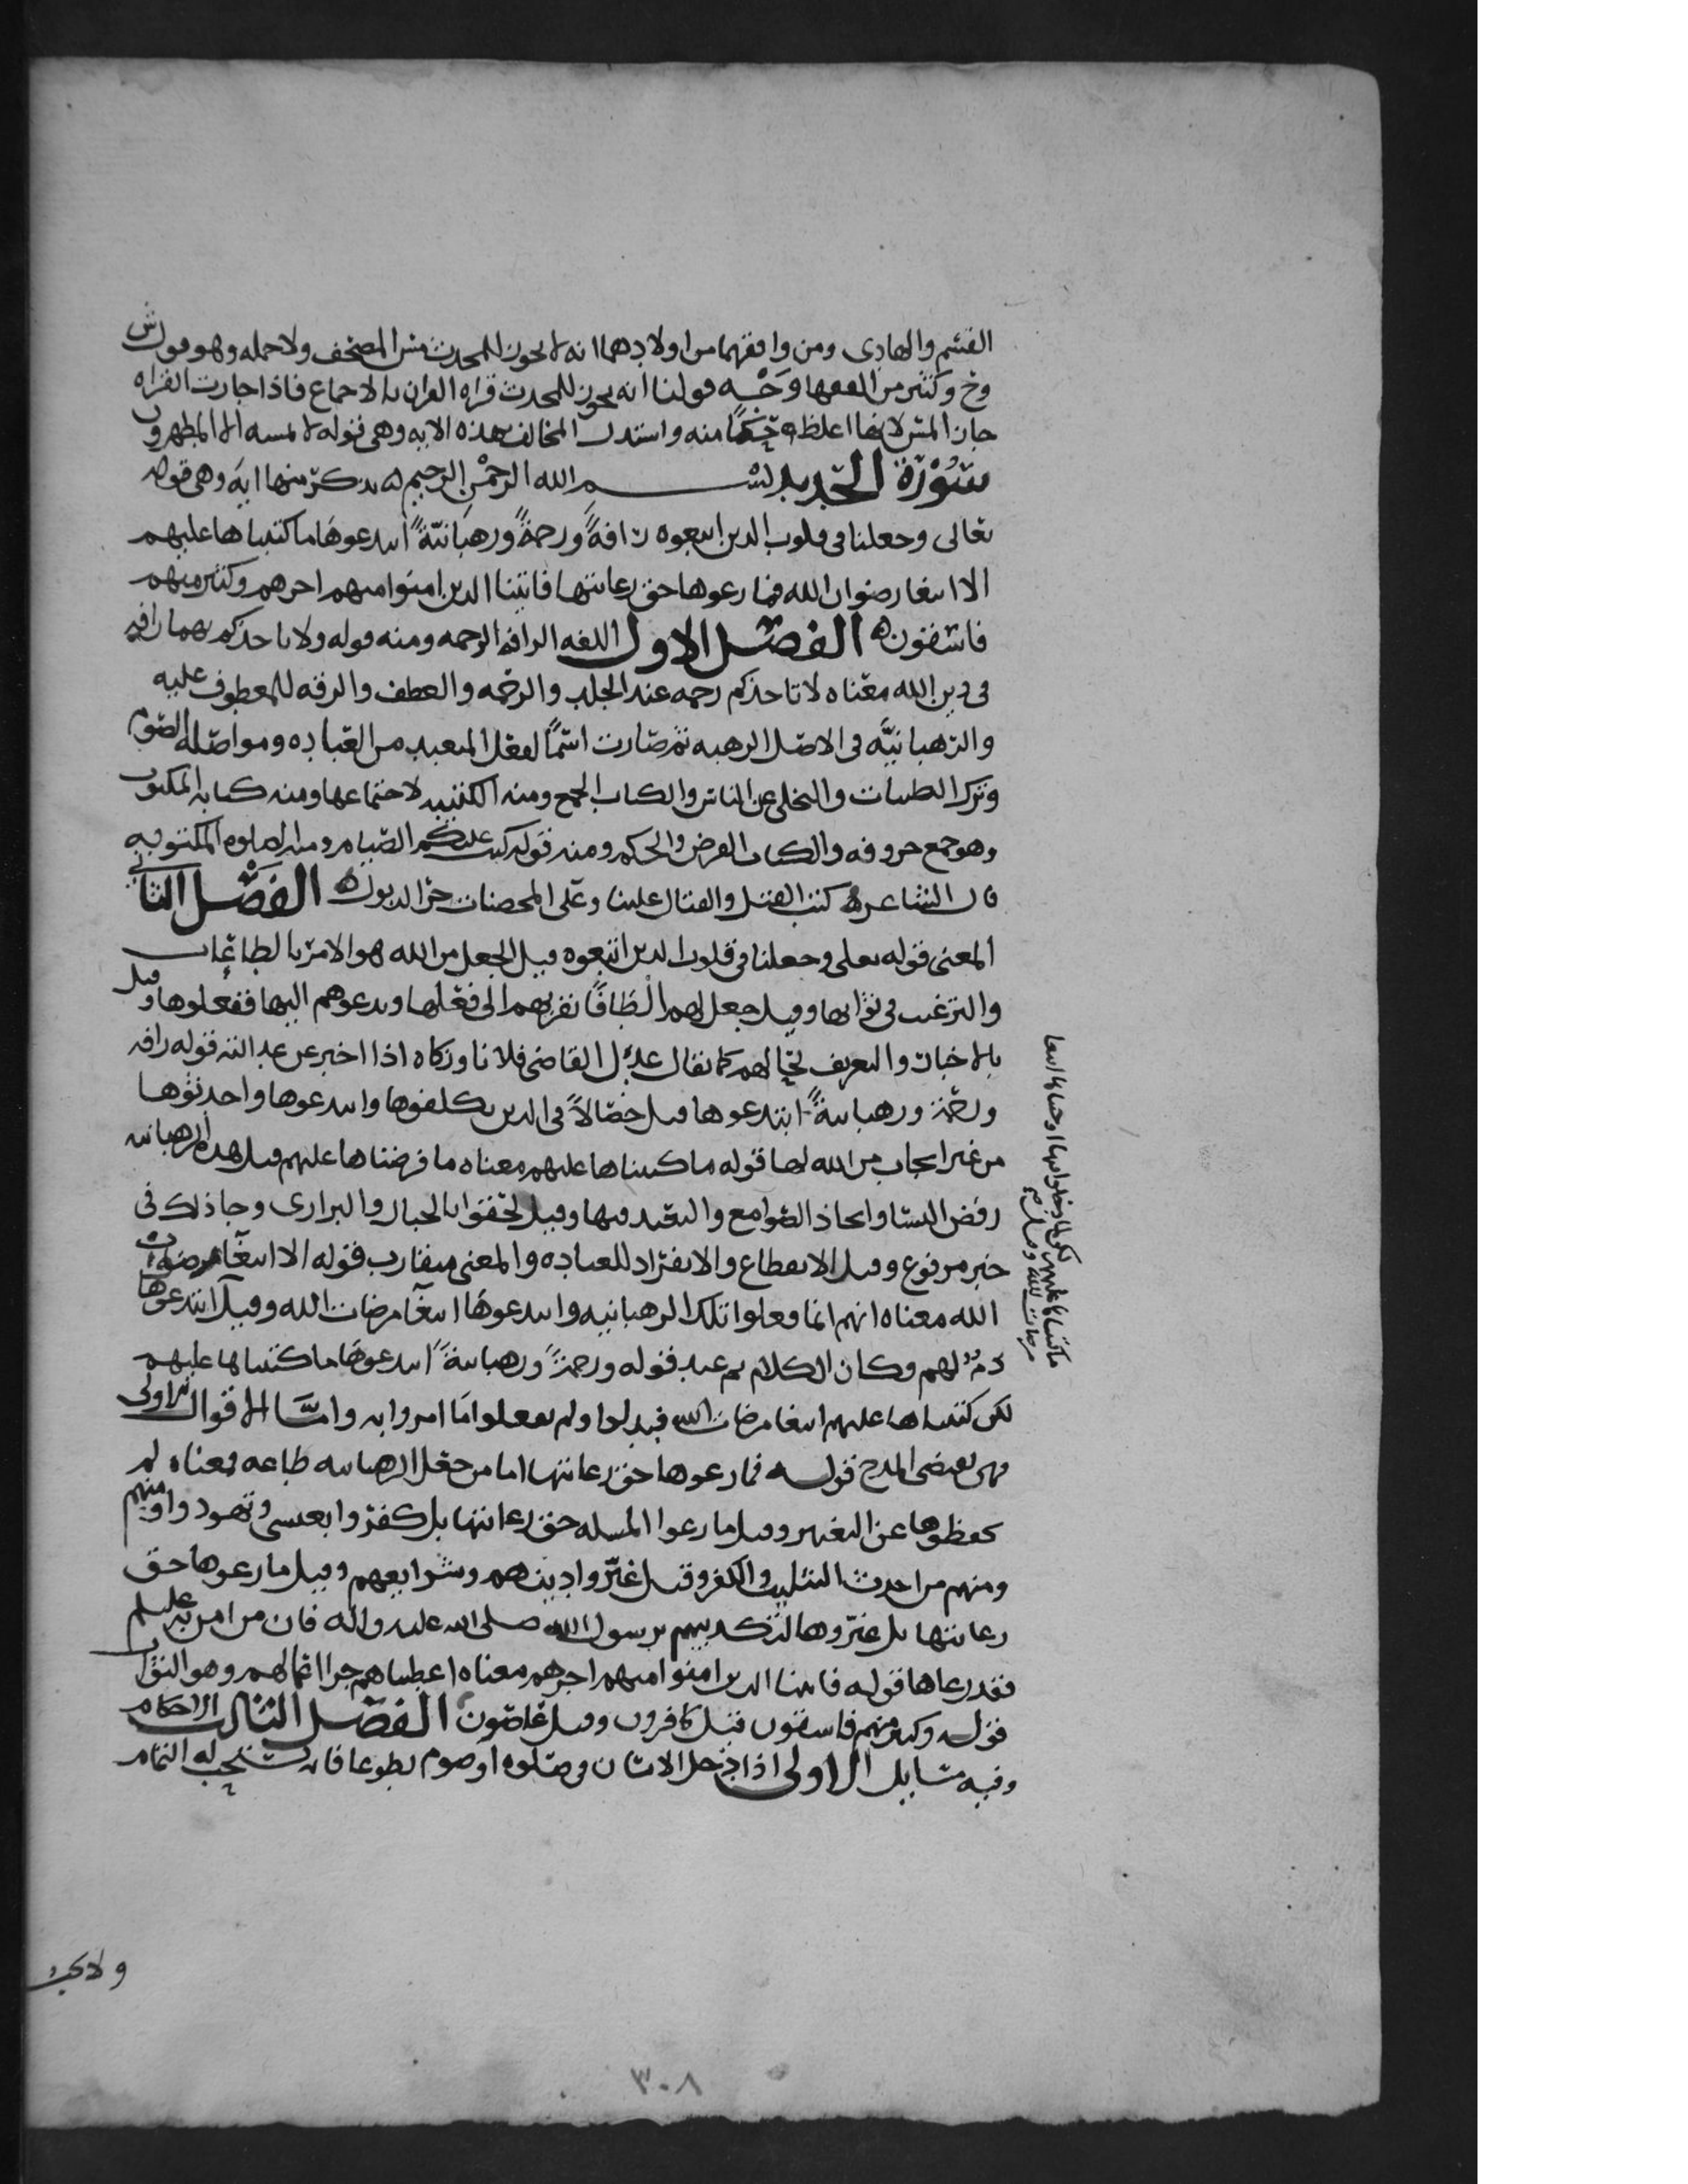 القسم والهادى ومن وافقهما من اولادهما انه لا يجوز للمحدث مس المصحف ولا حمله وهو قول ش
وح وكثير من الفقها وَجْه قولنا انه يجوز للمحدث قراه القران بالاجماع فاذا جازت القراه
جاز المس لانها اغلظ حكمًا منه واستدل المخالف بهذه الايه وهى قوله لا يمسه الا المطهرون
سُوْرَة الحَديد بسم الله الرحمن الرحيم يذكر منها ايه وهى قوله
تعالى وجعلنا فى قلوب الذين اتبعوه رافةً ورحمةً ورهبانيّةً ابتدعوهَا ما كتبناها عليهم
الا ابتغا رضوان الله فما رعوها حق رعايتها فاتينا الذين امنوا منهم اجرهم وكثير منهم
فاسقون الفصل الاول اللغه الرافه الرحمه ومنه قوله ولا تاخذكم بهما رافه
فى دين الله معناه لا تاخذكم رحمه عند الجلد والرحمه والعطف والرقه للمعطوف عليه
والرهبانيَّه فى الاصل الرهبه ثم صارت اسمًا لفعل المتعبد من العباده ومواصله الصوم
وترك الطيبات والتخلى عن الناس والكتاب الجمع ومنه الكتيبه لاجتماعها ومنه كتابه المكتوب
وهو جمع حروفه والكتاب الفرض والحكم ومنه قوله كتب عليكم الصيام ومنه الصلوه المكتوبه
قال الشاعر كتب القتل والقتال علينا وعلى المحصنات جر الذيول الفَصْل الثانى
المعنى قوله تعلى وجعلنا فى قلوب الذين اتبعوه قيل الجعل من الله هو الامر بالطاعات
والترغيب فى ثوابها وقيل جعل لهم الطافًا تقربهم الى فعلها ويدعوهم اليها ففعلوها وقيل
بالاخبار والتعريف لهم كما يقال عدّل القاضى فلانا وزكاه اذا اخبر عن عدالته قوله رافه
ورحمة ورهبانيةً ابتدعوها قيل خصالاً فى الدين تكلفوها وابتدعوها واحدثوها
من غير ايجاب من الله لها قوله ما كتبناها عليهم معناه ما فرضناها عليهم قيل هذه الرهبانيه
رفض النسا واتخاذ الصوامع والتعبد فيها وقيل لحقوا بالجبال والبرارى وجا ذلك فى
خبر مرفوع وقيل الانقطاع والانفراد للعباده والمعنى متقارب قوله الا ابتغا رضوان
الله معناه انهم انما فعلوا تلك الرهبانيه وابتدعوهَا ابتغا مرضات الله وقيل ابتدعوها
ذمٌ لهم وكان الكلام تم عند قوله ورحمةً ورهبانيةً ابتدعوهَا ما كتبناها عليهم
لكن كتبناها عليهم ابتغا مرضات الله فبدلوا ولم يفعلوا مَا امروا به وامَّا الاقوال الاولى
فهى تقتضى المدح قوله فما رعوها حق رعايتها اما من جعل الرهبانيه طاعه فمعناه لم
يحفظوها عن التغيير وقيل ما رعوا المسله حق رعايتها بل كفروا بعيسى وتهودوا ومنهم
ومنهم من احدث التثليث والكفر وقيل غيّروا دينهم وشرايعهم وقيل ما رعوها حق
رعايتها بل غيّروها لتكذيبهم برسول الله صلى الله عليه واله فان من امن به عليلم
فقد رعاها قوله فاتينا الذين امنوا منهم اجرهم معناه اعطيناهم جزا اعمالهم وهو الثواب
قوله وكثير منهم فاسقون قيل كافرون وقيل عاصون الفصل الثالث الاحكام
وفيه مسايل الاولى اذا دخل الانسان فى صلوه او صوم تطوعا فانه يستحب له التمام
ولا يجب
٣٠٨